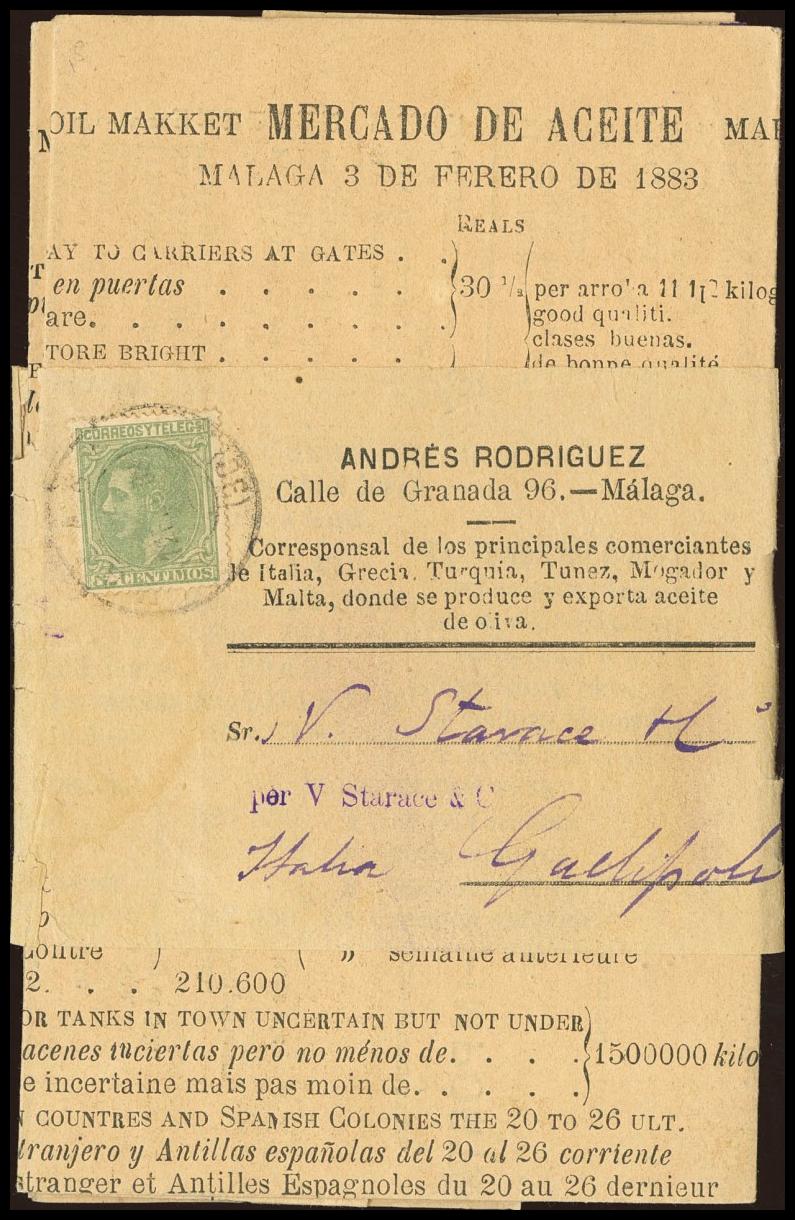 OIL MAKKET MERCADO DE ACEITE
MALAGA 3 DE FERERO DE 1883
REALS
AY TO CARRIERS AT GATES . .
en puertas . . . . . 30 1/2 per arro'a 11 1[2 kilog
are. . . . . . . . good qualiti.
clases buenas.
TORE BRIGHT . . . . de bonne qualité
CORREOS Y TELEGS
5 CENTIMOS
ANDRÉS RODRIGUEZ
Calle de Granada 96.—Málaga.
Corresponsal de los principales comerciantes
de Italia, Grecia, Turquía, Tunez, Mogador y
Malta, donde se produce y exporta aceite
de oliva.
Sr. V. Starace
por V Starace & C
Italia Gallipoli
contre ) ( ,, semaine anterieure
2. . . 210.600
OR TANKS IN TOWN UNCERTAIN BUT NOT UNDER
acenes inciertas pero no ménos de. . . . 1500000 kilo
e incertaine mais pas moin de. . . . .
N COUNTRES AND SPANISH COLONIES THE 20 TO 26 ULT.
tranjero y Antillas españolas del 20 al 26 corriente
stranger et Antilles Espagnoles du 20 au 26 dernieur